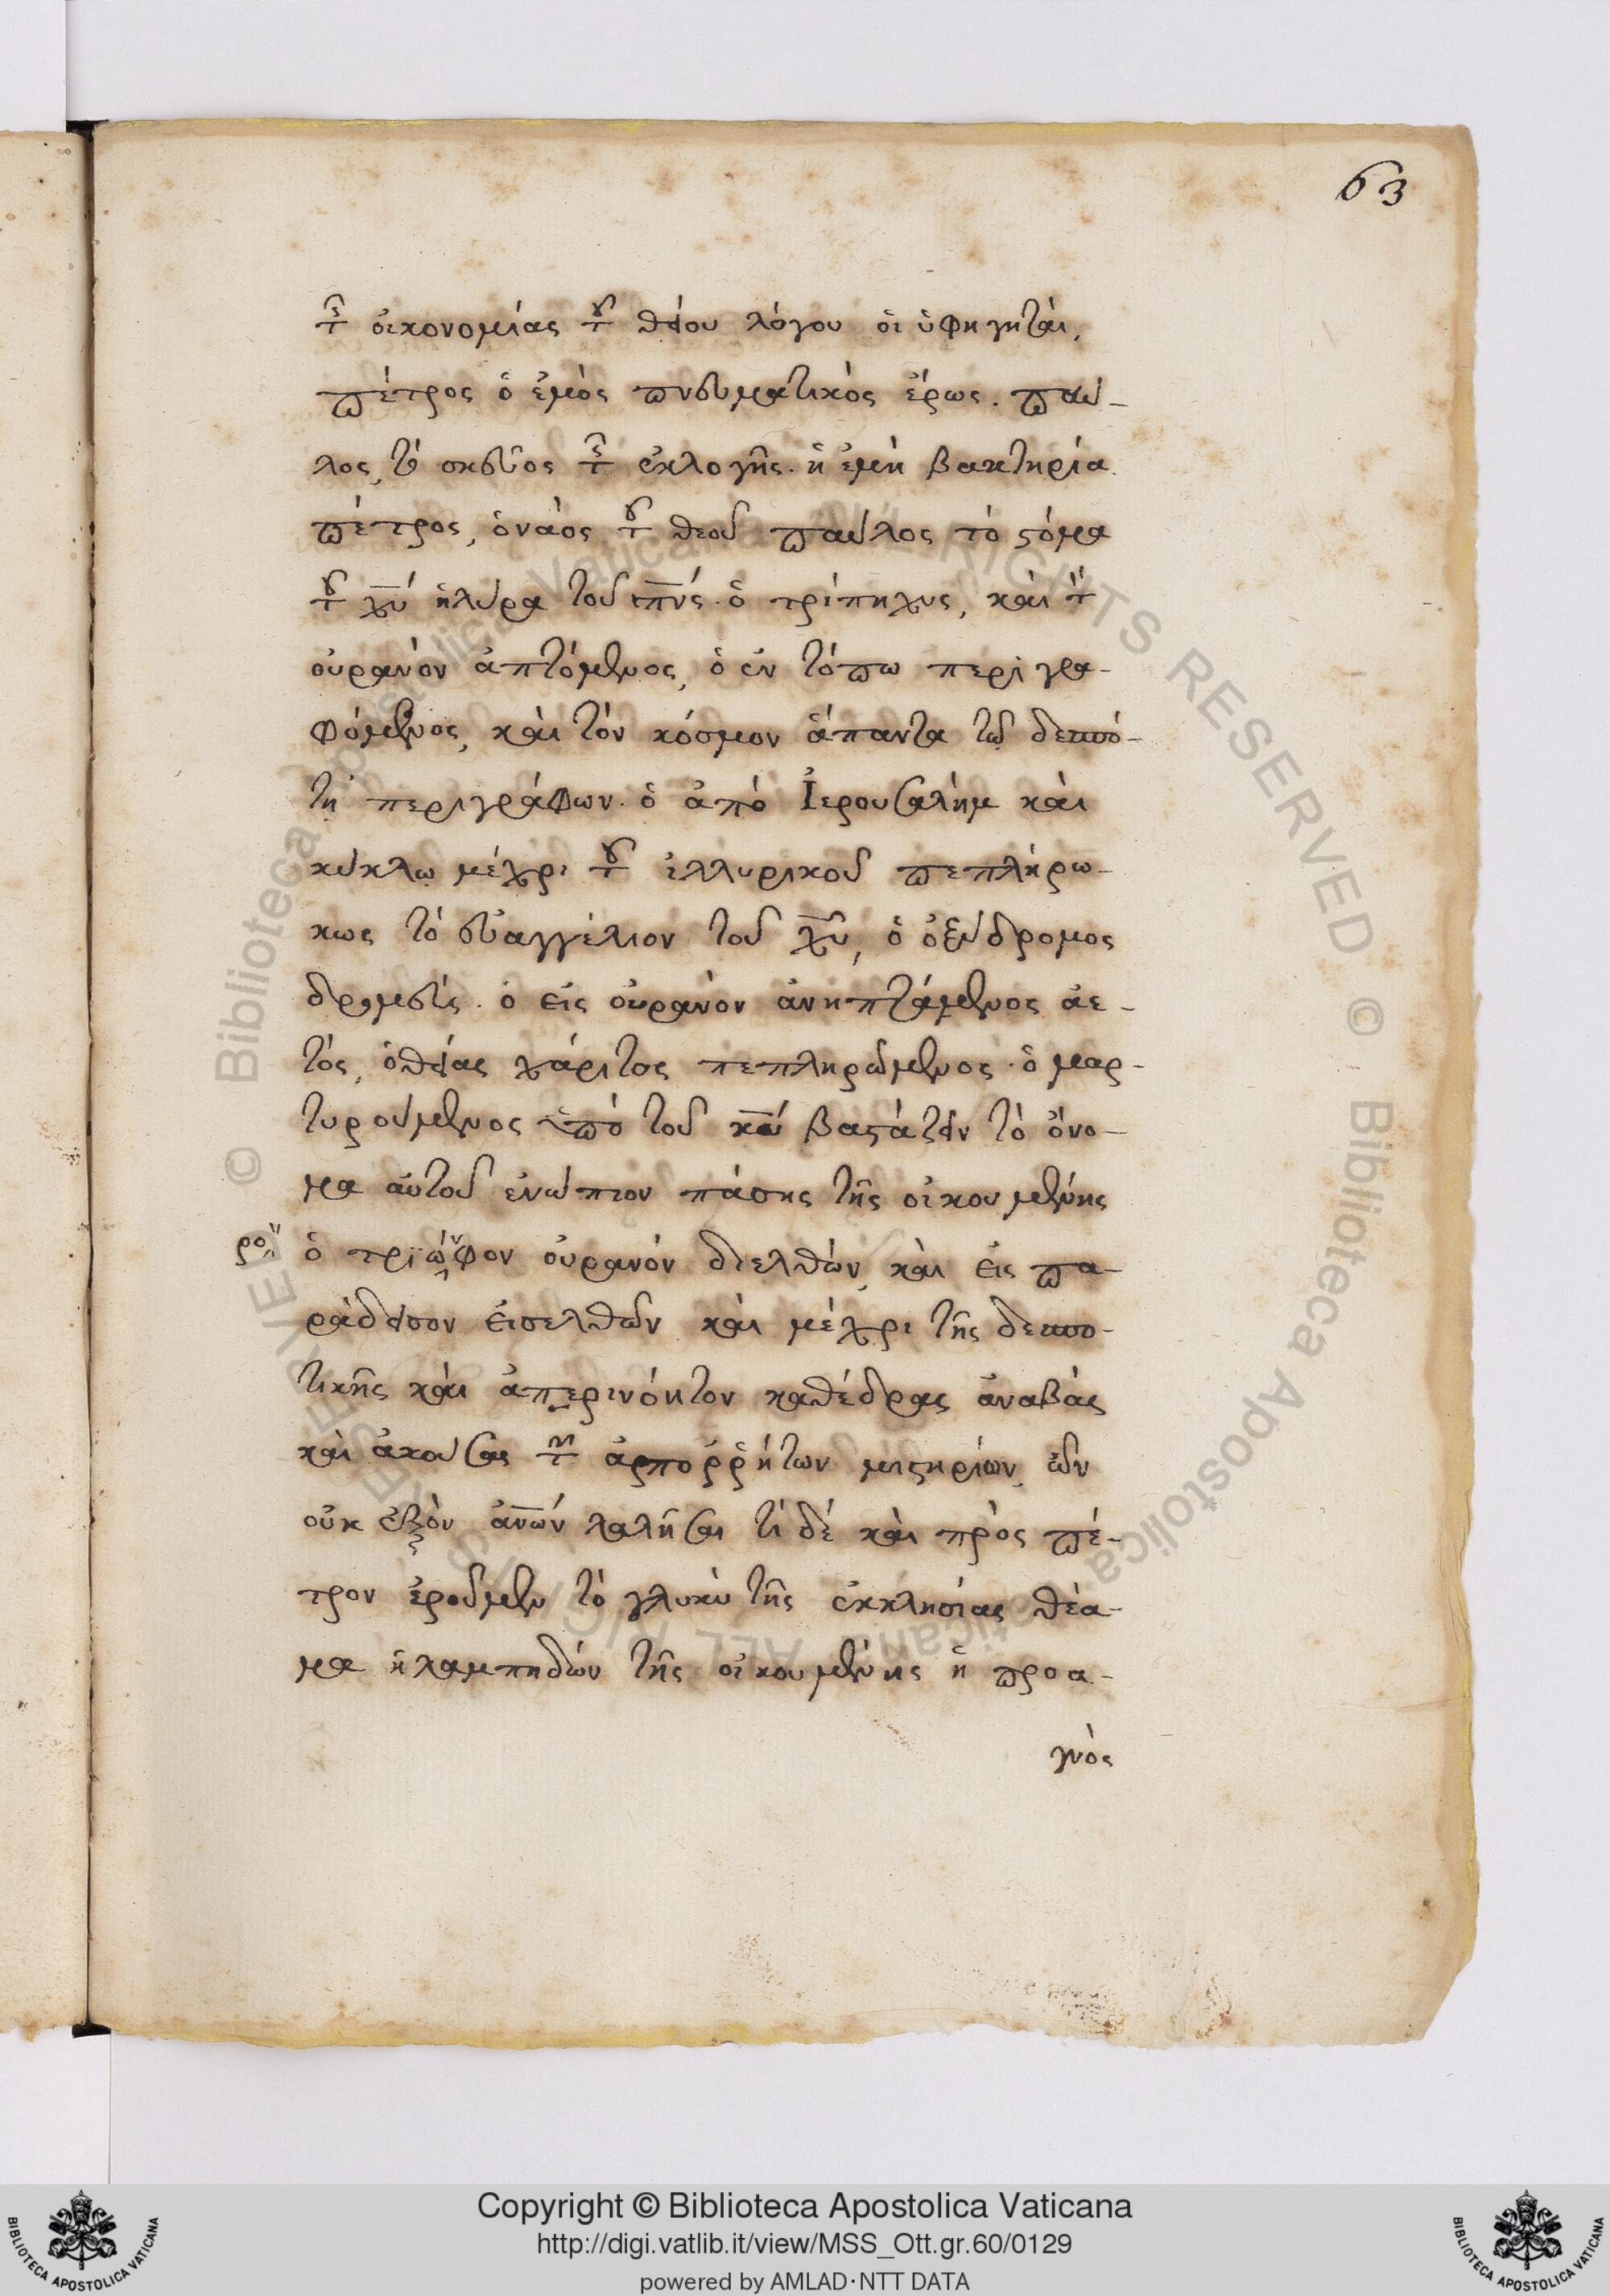 63
τῆς οἰκονομίας τοῦ θείου λόγου οἱ ὑφηγηταί,
πέτρος ὁ ἐμὸς πνευματικὸς ἔρως. παῦ-
λος, τὸ σκεῦος τῆς ἐκλογῆς. ἡ ἐμὴ βακτηρία.
πέτρος, ὁ ναὸς τοῦ θεοῦ παῦλος τὸ στόμα
τοῦ χυ̅ ἡ λύρα τοῦ πνς̅. ὁ τρίπηχυς, καὶ τῶν
οὐρανὸν ἁπτόμενος, ὁ ἐν τόπω περιγρα-
φόμενος, καὶ τὸν κόσμον ἅπαντα τῷ δεσπό-
τῃ περιγράφων. ὁ ἀπὸ Ἰερουσαλὴμ καὶ
κύκλῳ μέχρι τοῦ ἰλλυρικοῦ πεπληρω-
κως τὸ εὐαγγέλιον τοῦ χυ̅, ὁ ὀξύδρομος
δρομεύς. ὁ εἰς οὐρανὸν ἀνηπτάμενος ἀε-
τός, ὁ θείας χάριτος πεπληρωμενος. ὁ μαρ-
τυρούμενος ὑπὸ τοῦ κυ̅ βαστάζειν τὸ ὄνο-
μα αὐτοῦ ἐνώπιον πάσης τῆς οἰκουμένης
ρο ὁ τριώφον οὐρανὸν διελθών, καὶ εἰς πα-
ράδεισον εἰσελθὼν καὶ μέχρι τῆς δεσπο-
τικῆς καὶ ἀπερινόητον καθέδρας ἀναβὰς
καὶ ἀκούσας τῶν ἀπορρήτων μυστηρίων, ὧν
οὐκ ἐξὸν ἀνω̅ν λαλῆσαι τί δὲ καὶ πρὸς πέ-
τρον ἐροῦμεν τὸ γλυκὺ τῆς ἐκκλησίας θέα-
μα ἡ λαμπηδὼν τῆς οἰκουμένης ἡ προα-
γνὸς
© Biblioteca Apostolica Vaticana ALL RIGHTS RESERVED
Copyright © Biblioteca Apostolica Vaticana
http://digi.vatlib.it/view/MSS_Ott.gr.60/0129
powered by AMLAD·NTT DATA
BIBLIOTECA APOSTOLICA VATICANA
BIBLIOTECA APOSTOLICA VATICANA